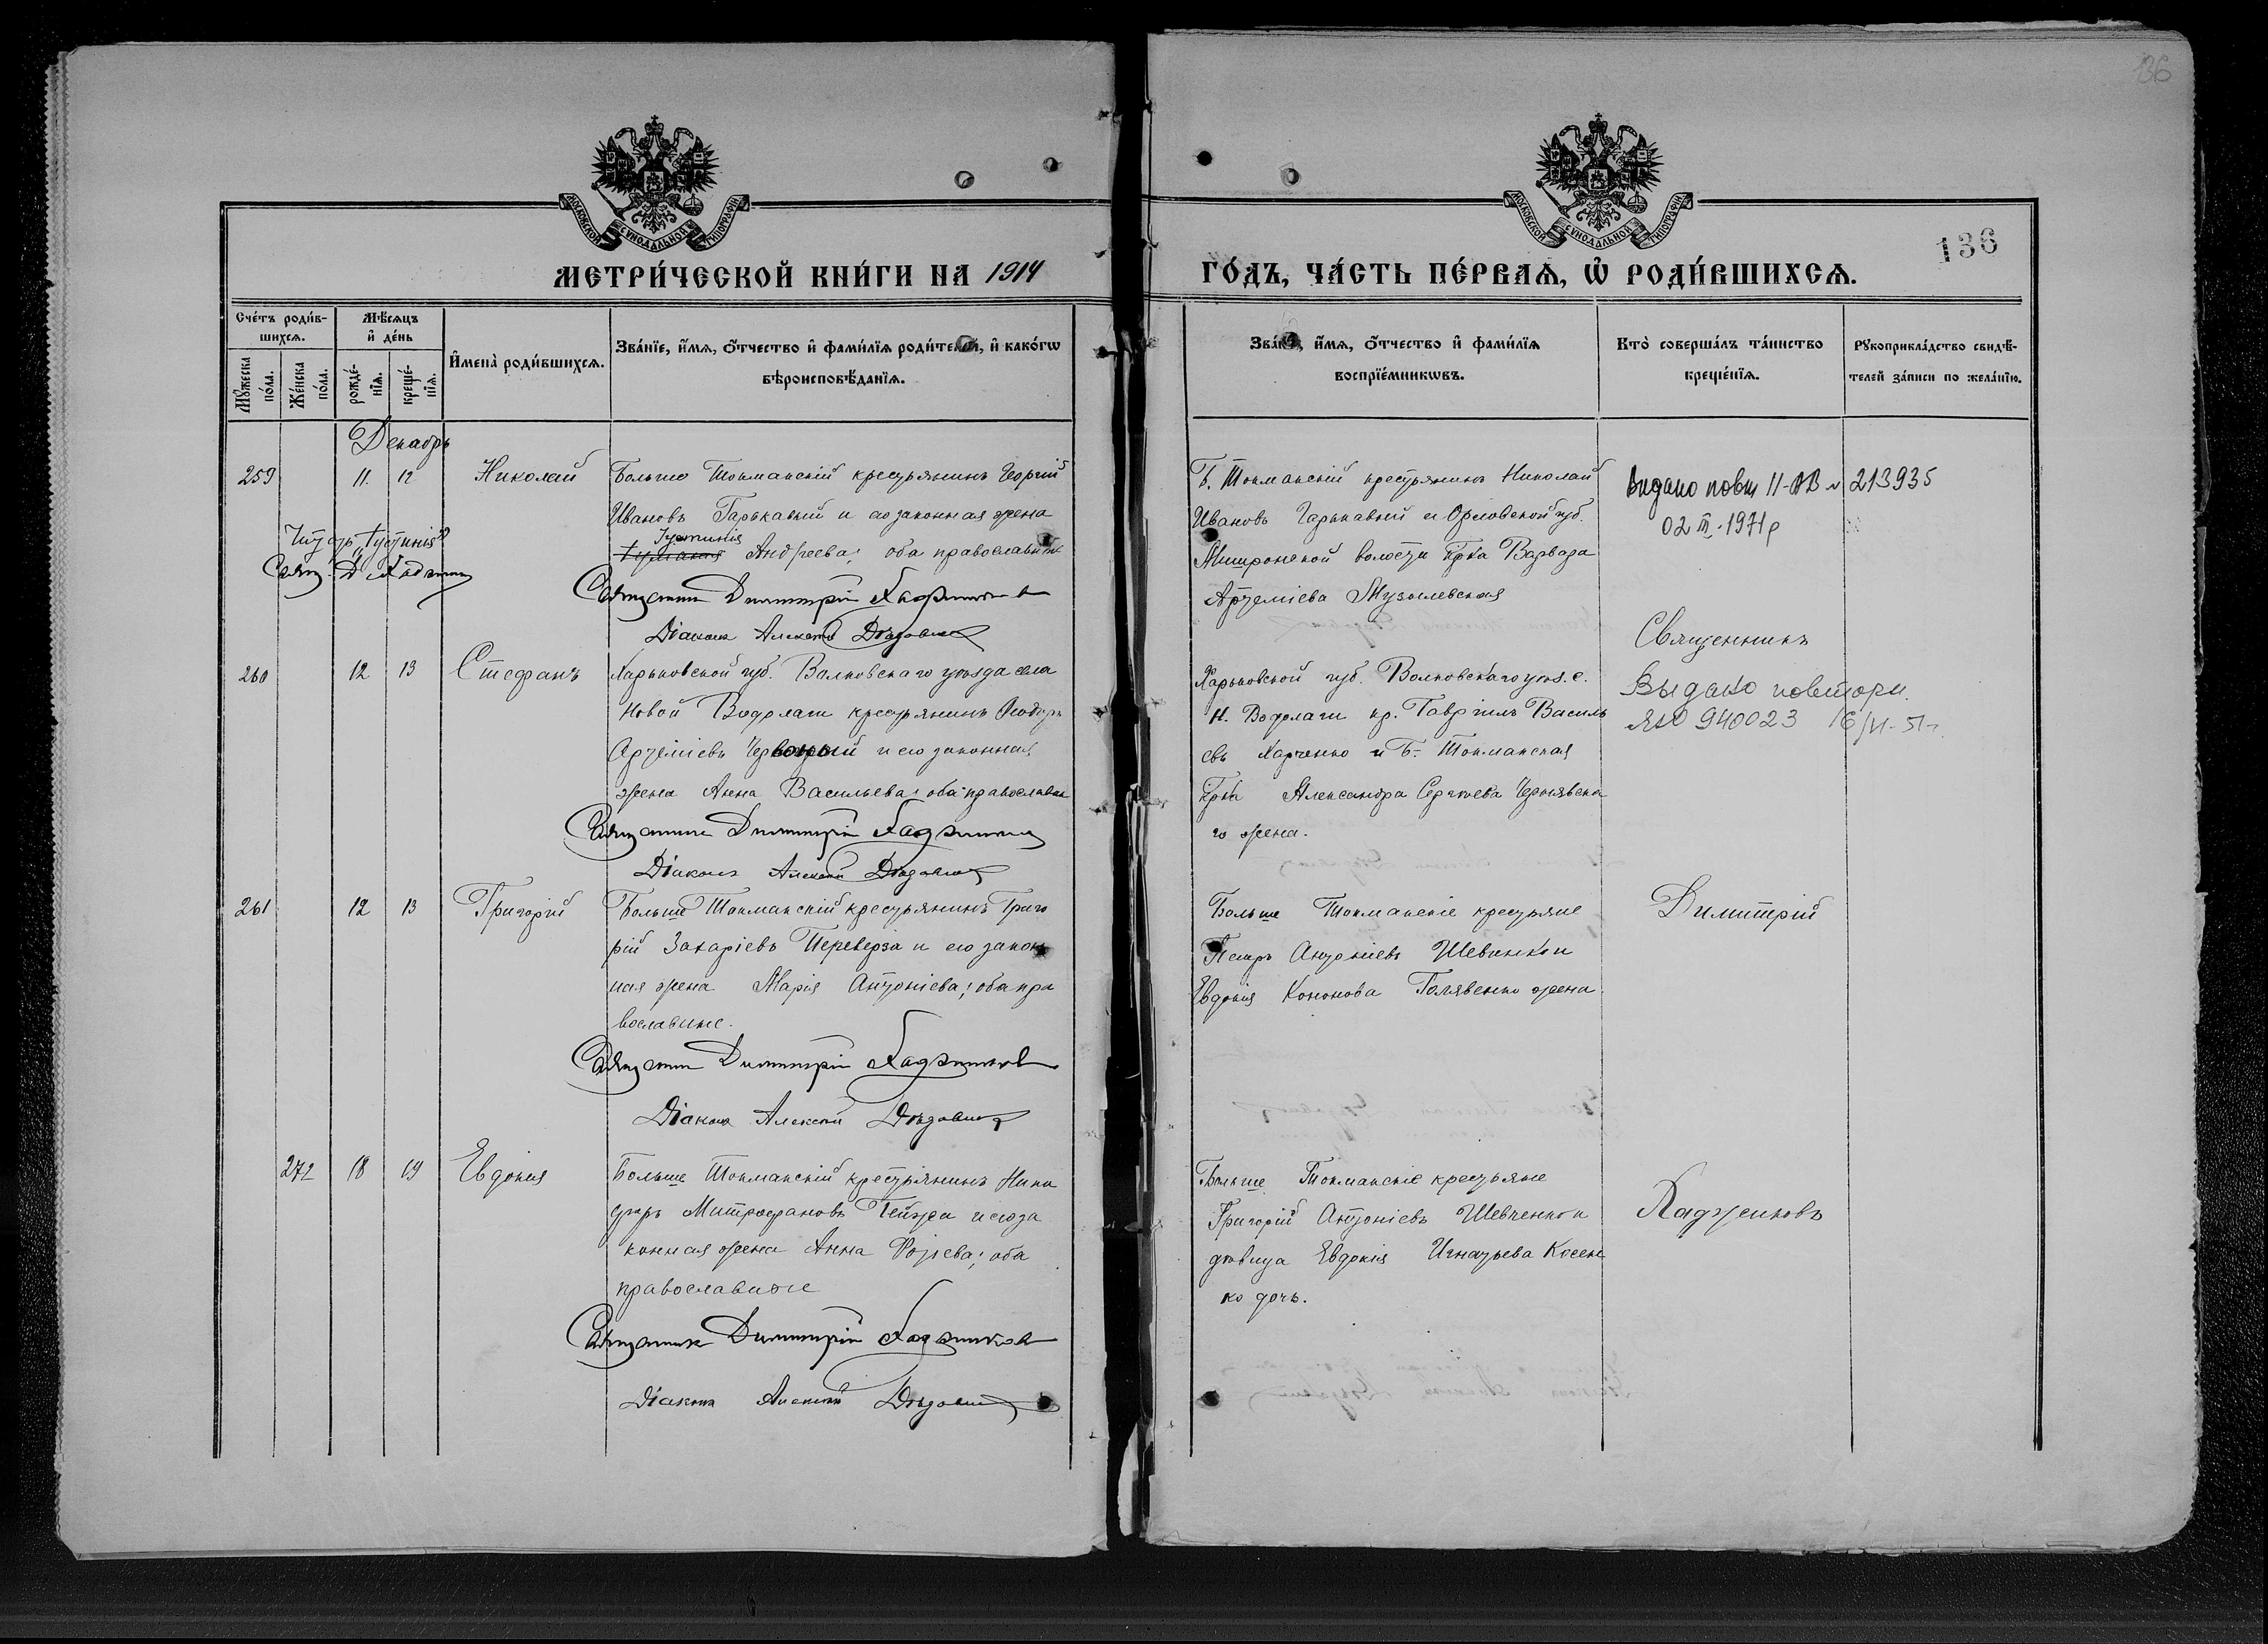 136
МОСКОВСКОЙ СУНОДАЛЬНОЙ ТИПОГРАФІИ
МОСКОВСКОЙ СУНОДАЛЬНОЙ ТИПОГРАФІИ
136
МЕТРИ́ЧЕСКОЙ КНИ́ГИ НА 1914
ГО́ДЪ, ЧА́СТЬ ПЕ́РВАѦ, Ѡ҆ РОДИ́ВШИХСѦ.
Сче́тъ роди́в-
шихсѧ.
Мꙋ́жеска
по́ла.
Же́нска
по́ла.
Мѣ́сѧцъ
и҆ де́нь
рожде́-
нїѧ.
креще́-
нїѧ.
И҆мена̀ роди́вшихсѧ.
Зва́нїе, и҆́мѧ, ѻ҆́тчество и҆ фами́лїѧ роди́телей, и҆ како́гѡ
вѣроисповѣ́данїѧ.
Зва́нїе, и҆́мѧ, ѻ҆́тчество и҆ фами́лїѧ
воспрїе́мникѡвъ.
Кто̀ соверша́лъ та́инство
креще́нїѧ.
Рꙋкоприкла́дство свидѣ́-
телей за́писи по жела́нїю.
Декабрь
259
11.
12
Николай
Больше Токмакскій крестьянинъ Георгій
Ивановъ Гарькавый и его законная жена
Іустинія
Андреева; оба православные
Священникъ Димитрій Хаджиновъ
Діаконъ Алексѣй
Свящ. Д.
Б. Токмакскій крестьянинъ Николай
Ивановъ Гарькавый и Орловской губ.
волости кр-ка Варвара
Артеміева
Видано повт II-АВ № 213935
02 III-1971р
Священникъ
260
12
13
Стефанъ
Харьковской губ. Валковскаго уѣзда села
Новой Водолаги крестьянинъ Ѳеодоръ
Артеміевъ и его законная
жена Анна Васильева; оба православн
Священникъ Димитрій Хаджиновъ
Діаконъ Алексѣй
Харьковской губ. Волковскаго уѣз. с.
Н. Водолаги кр. Гавріилъ Василь
евъ Харченко и Б. Токмакская
кр-ка Александра Сергѣева Чернявска
го жена.
Выдано повторн.
940023
261
12
13
Григорій
Больше Токмакскій крестьянинъ Григо
рій Захаріевъ Переверза и его закон
ная жена Марія Антоніева; оба пра
вославные.
Священникъ Димитрій Хаджиновъ
Діаконъ Алексѣй
Больше Токмакскіе крестьяне
Петръ Антоніевъ Шевченко и
Евдокія Кононова Голявенко жена
Димитрій
272
18
19
Евдокія
Больше Токмакскій крестьянинъ Ники
форъ Митрофановъ и его за
конная жена Анна; оба
православные
Священникъ Димитрій Хаджиновъ
Діаконъ Алексѣй
Больше Токмакскіе крестьяне
Григорій Антоніевъ Шевченко и
дѣвица Евдокія Игнатьева Косен
ко дочь.
Хаджиновъ